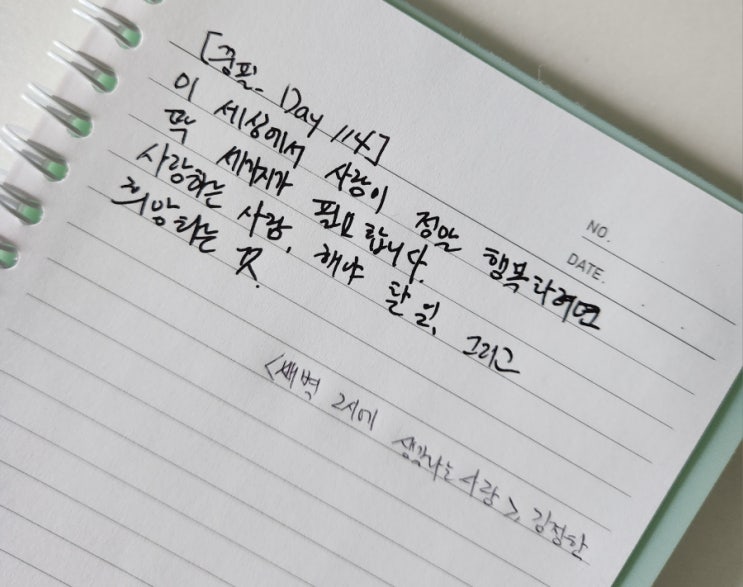 [중필. Day 114]
이 세상에서 사람이 정말 행복하려면
딱 세가지가 필요합니다.
사랑하는 사람, 해야 할 일, 그리고
희망하는 것.
<새벽 2시에 생각나는 사람>, 김정한
NO.
DATE.